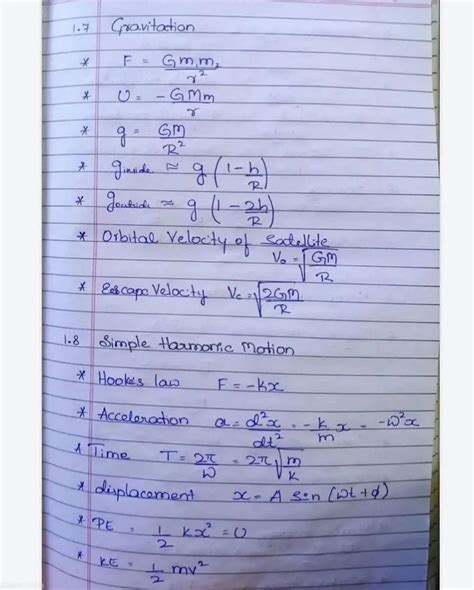 1.7 Gravitation
* F = Gm₁m₂/r²
* U = -GMm/r
* g = GM/R²
* g inside ≈ g (1-h/R)
* g outside ≈ g (1-2h/R)
* Orbital Velocity of Satellite
V₀ = √(GM/R)
* Escape Velocity Vc = √(2GM/R)
1.8 Simple Harmonic Motion
* Hooke's law F = -kx
* Acceleration a = d²x/dt² = -k/m x = -ω²x
* Time T = 2π/ω = 2π√(m/k)
* displacement x = A sen (ωt+φ)
* PE = 1/2 kx² = U
* KE = 1/2 mv²